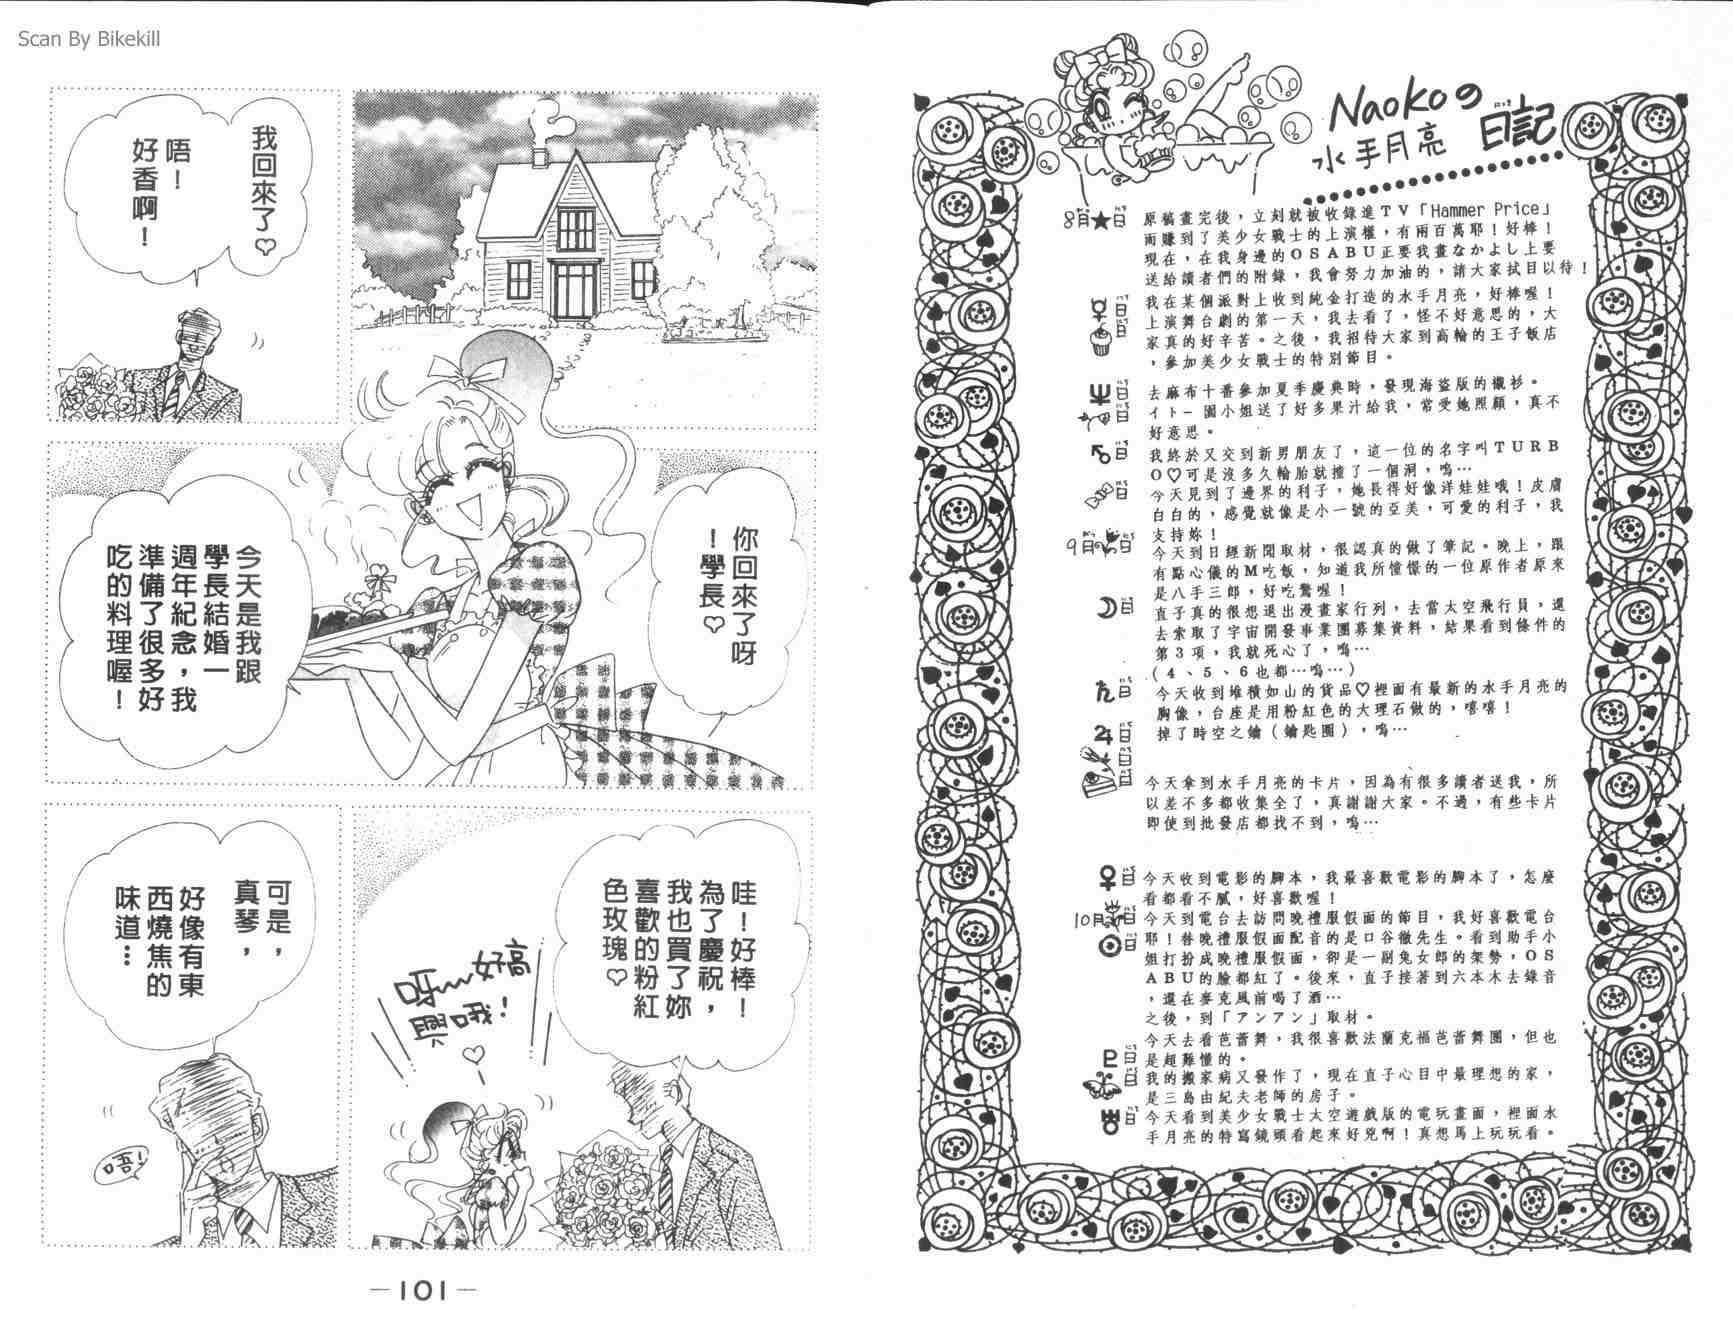 Scan By Bikekill
Naokoの
水手月亮
日記
8月★日
原稿畫完後，立刻就被收錄進TV「Hammer Price」
而賺到了美少女戰士的上演權，有兩百萬耶！好棒！
現在，在我身邊的OSABU正要我畫なかよし上要
送給讀者們的附錄，我會努力加油的，請大家拭目以待！
☿日
我在某個派對上收到純金打造的水手月亮，好棒喔！
日
上演舞台劇的第一天，我去看了，怪不好意思的，大
家真的好辛苦。之後，我招待大家到高輪的王子飯店
，參加美少女戰士的特別節目。
日
去麻布十番參加夏季慶典時，發現海盜版的襯衫。
日
イト－園小姐送了好多果汁給我，常受她照顧，真不
好意思。
♂日
我終於又交到新男朋友了，這一位的名字叫TURB
O♡可是沒多久輪胎就撞了一個洞，嗚…
日
今天見到了邊界的利子，她長得好像洋娃娃哦！皮膚
白白的，感覺就像是小一號的亞美，可愛的利子，我
支持妳！
9月の日
今天到日經新聞取材，很認真的做了筆記。晚上，跟
有點心儀的M吃飯，知道我所憧憬的一位原作者原來
是八手三郎，好吃驚喔！
☽日
直子真的很想退出漫畫家行列，去當太空飛行員，還
去索取了宇宙開發事業團募集資料，結果看到條件的
第3項，我就死心了，嗚…
（4、5、6也都…嗚…）
日
今天收到堆積如山的貨品♡裡面有最新的水手月亮的
胸像，台座是用粉紅色的大理石做的，嘻嘻！
♃日
掉了時空之鑰（鑰匙圈），嗚…
日
今天拿到水手月亮的卡片，因為有很多讀者送我，所
以差不多都收集全了，真謝謝大家。不過，有些卡片
即使到批發店都找不到，嗚…
♀日
今天收到電影的腳本，我最喜歡電影的腳本了，怎麼
看都看不膩，好喜歡喔！
10月日
今天到電台去訪問晚禮服假面的節目，我好喜歡電台
☉日
耶！替晚禮服假面配音的是口谷徹先生。看到助手小
姐打扮成晚禮服假面，卻是一副兔女郎的架勢，OS
ABU的臉都紅了。後來，直子接著到六本木去錄音
，還在麥克風前喝了酒…
之後，到「アンアン」取材。
日
今天去看芭蕾舞，我很喜歡法蘭克福芭蕾舞團，但也
是超難懂的。
日
我的搬家病又發作了，現在直子心目中最理想的家，
是三島由紀夫老師的房子。
♅日
今天看到美少女戰士太空遊戲版的電玩畫面，裡面水
手月亮的特寫鏡頭看起來好兇啊！真想馬上玩玩看。
我回來了♡
唔！
好香啊！
你回來了呀
！學長♡
今天是我跟
學長結婚一
週年紀念，我
準備了很多好
吃的料理喔！
哇！好棒！
為了慶祝，
我也買了妳
喜歡的粉紅
色玫瑰♡
呀～好高
興哦！
♡
可是，
真琴，
好像有東
西燒焦的
味道…
唔！
—101—